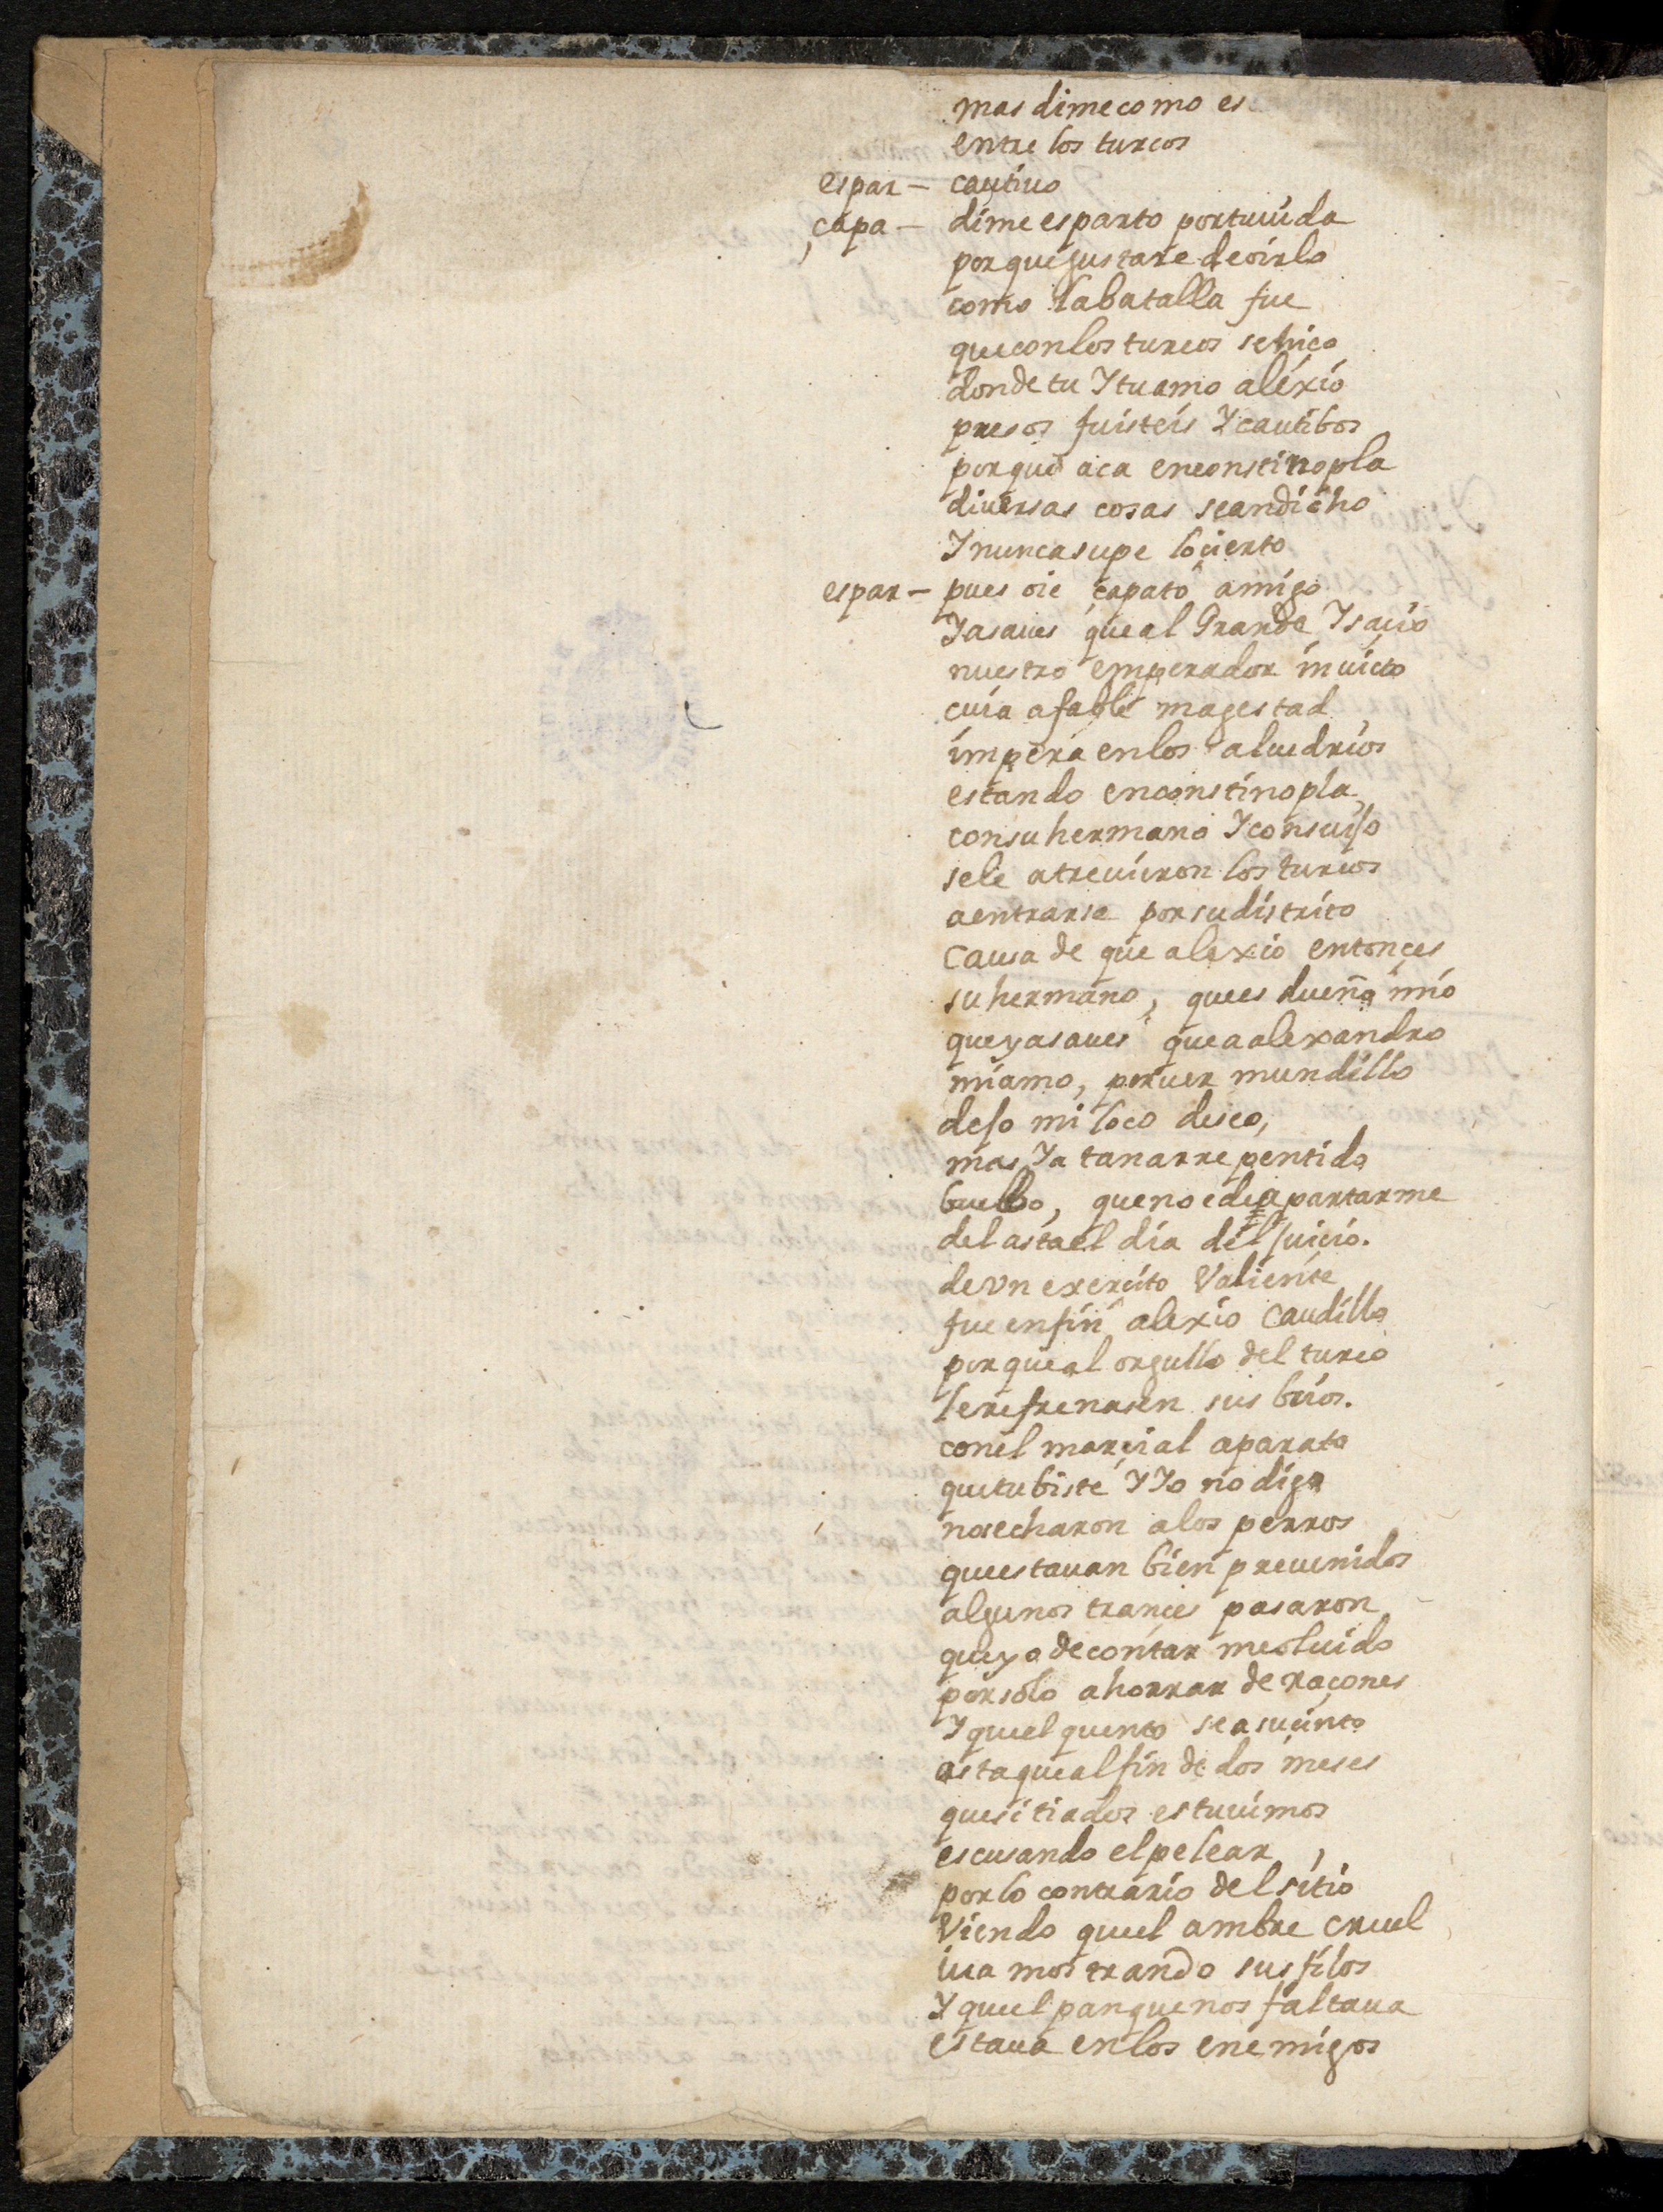 mas dime como es
entre los turcos
espar — cautiuo
çapa — dime esparto por tu uida
porque gustare de oirlo
como la batalla fue
que con los turcos se hiço
donde tu Y tu amo alexio
presos fuisteis Y cautibos
porque aca en constinopla
diuersas cosas se an dicho
Y nunca supe lo çierto
espar — pues oie çapato amigo
Ya saues que al Grande Ysaçio
nuestro emperador inuicto
cuia afable magestad
impera en los aluedrios
estando en constinopla
con su hermano Y con su ijo
se le atreuieron los turcos
a entrarse por su distrito
Causa de que alexio entonçes
su hermano, que es dueño mio
que ya saues que a alexandro
mi amo, por uer mundillo
dejo mi loco deseo,
mas Ya tan arrepentido
buelbo, que no e de apartarme
del asta el dia del juicio.
de Vn exercito Valiente
fue en fin alexio Caudillo
porque al orgullo del turco
le refrenasen sus brios.
con el marçial aparato
que tubiste Y Yo no digo
nos echaron a los perros
que estauan bien preuenidos
algunos trançes pasaron
que yo de contar me oluido
por solo ahorrar de raçones
Y que el quento sea sucinto
asta que al fin de dos meses
que sitiados estuuimos
escusando el pelear,
por lo contrario del sitio
Viendo que el ambre cruel
iua mostrando sus filos
Y que el pan que nos faltaua
estaua en los enemigos